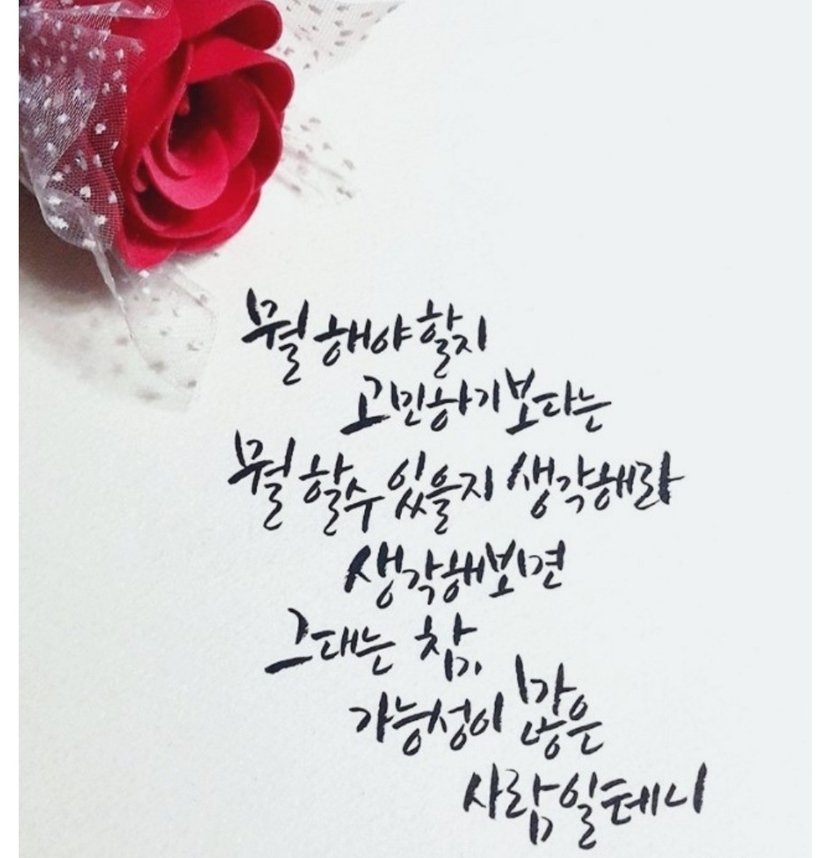 뭘 해야 할지
고민하기보다는
뭘 할 수 있을지 생각해라
생각해보면
그대는 참
가능성이 많은
사람일테니